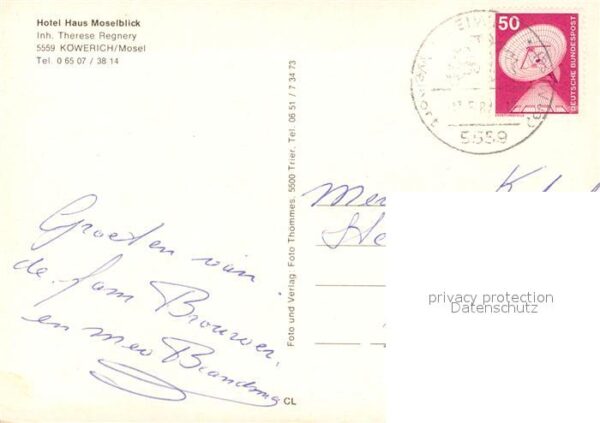 Hotel Haus Moselblick
Inh. Therese Regnery
5559 KÖWERICH/Mosel
Tel. 0 65 07 / 38 14
50
DEUTSCHE BUNDESPOST
5559
Foto und Verlag: Foto Thömmes, 5500 Trier, Tel. 06 51 / 7 34 73
Groeten van
de fam Brouwer.
en mev Brandsma
CL
privacy protection
Datenschutz